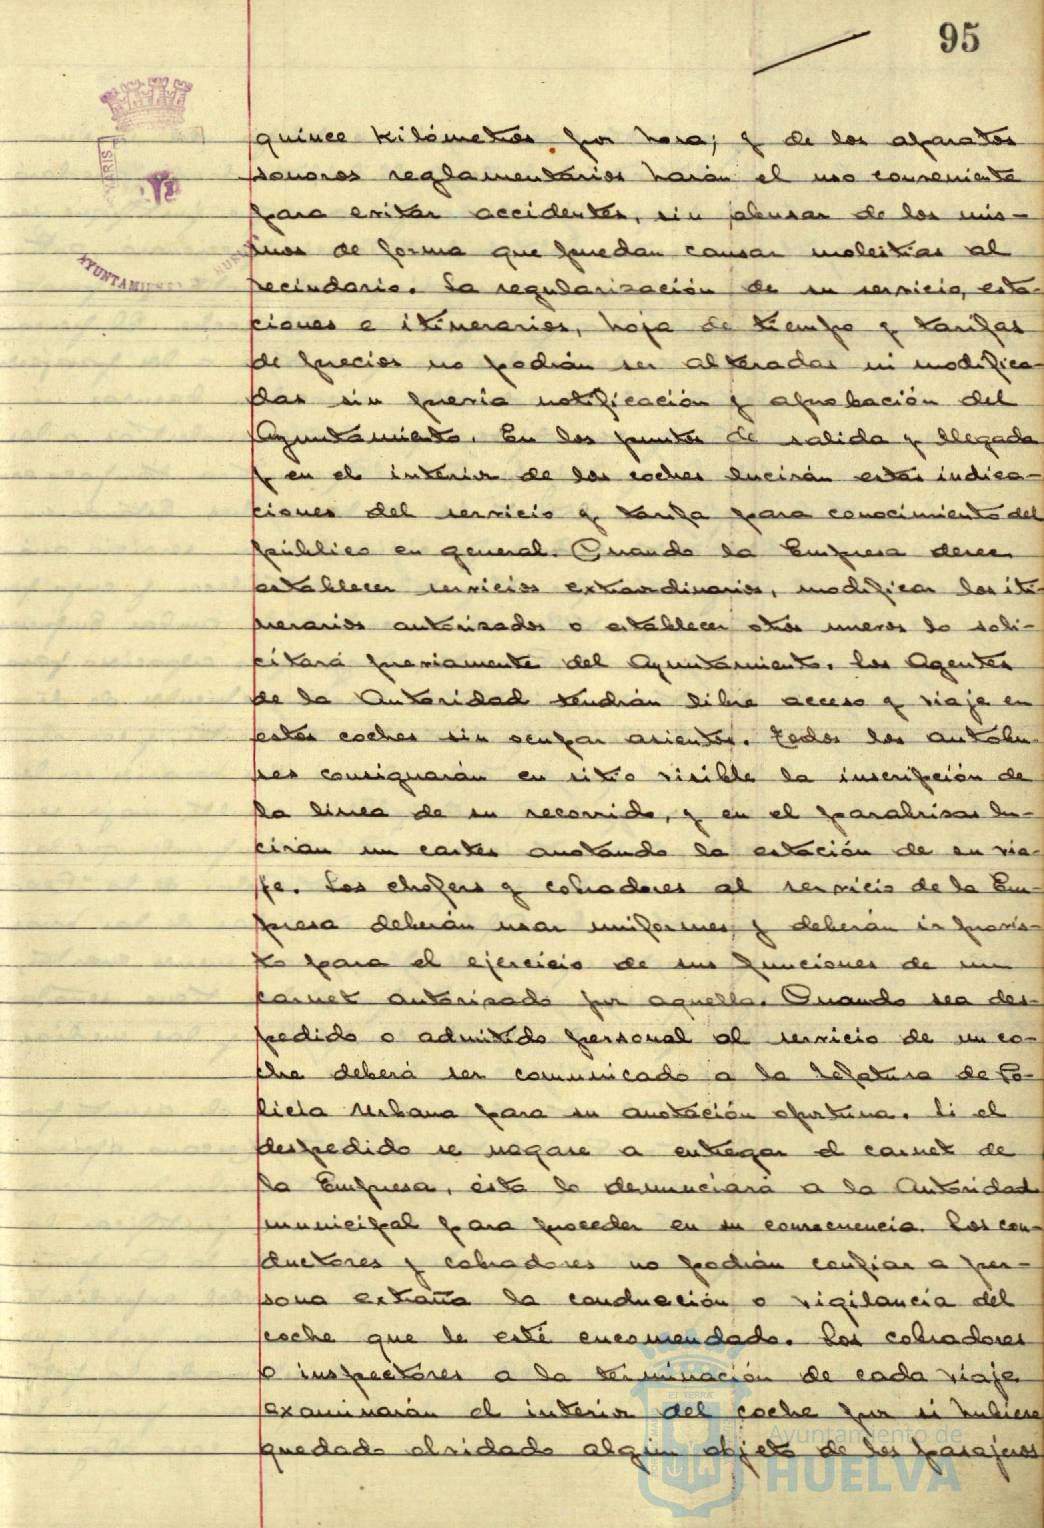 95
quince kilómetros por hora; y de los aparatos
sonoros reglamentarios harán el uso conveniente
para evitar accidentes, sin abusar de los mis-
mos de forma que puedan causar molestias al
vecindario. La regularización de su servicio, esta-
ciones e itinerarios, hoja de tiempo y tarifas
de precios no podrán ser alteradas ni modifica-
das sin previa notificación y aprobación del
Ayuntamiento. En los puntos de salida y llegada
y en el interior de los coches lucirán estas indica-
ciones del servicio y tarifa para conocimiento del
público en general. Cuando la Empresa desee
establecer servicios extraordinarios, modificar los iti-
nerarios autorizados o establecer otros nuevos lo soli-
citará previamente del Ayuntamiento. Los Agentes
de la Autoridad tendrán libre acceso y viaje en
estos coches sin ocupar asientos. Todos los autobu-
ses consignarán en sitio visible la inscripción de
la línea de su recorrido, y en el parabrisas lu-
cirán un cartel anotando la estación de en via-
je. Los chofers y cobradores al servicio de la Em-
presa deberán usar uniformes, y deberán ir provis-
to para el ejercicio de sus funciones de un
carnet autorizado por aquella. Cuando sea des-
pedido o admitido personal al servicio de un co-
che deberá ser comunicado a la Jefatura de Po-
licía Urbana para su anotación oportuna. Si el
despedido se negase a entregar el carnet de
la Empresa, ésta lo denunciará a la Autoridad
municipal para proceder en su consecuencia. Los con-
ductores y cobradores no podrán confiar a per-
sona extraña la conducción o vigilancia del
coche que le esté encomendado. Los cobradores
o inspectores a la terminación de cada viaje
examinarán el interior del coche por si hubiese
quedado olvidado algún objeto de los pasajeros
Ayuntamiento de
HUELVA